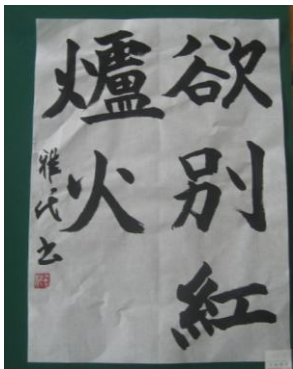 欲別紅
爐火
雅代書